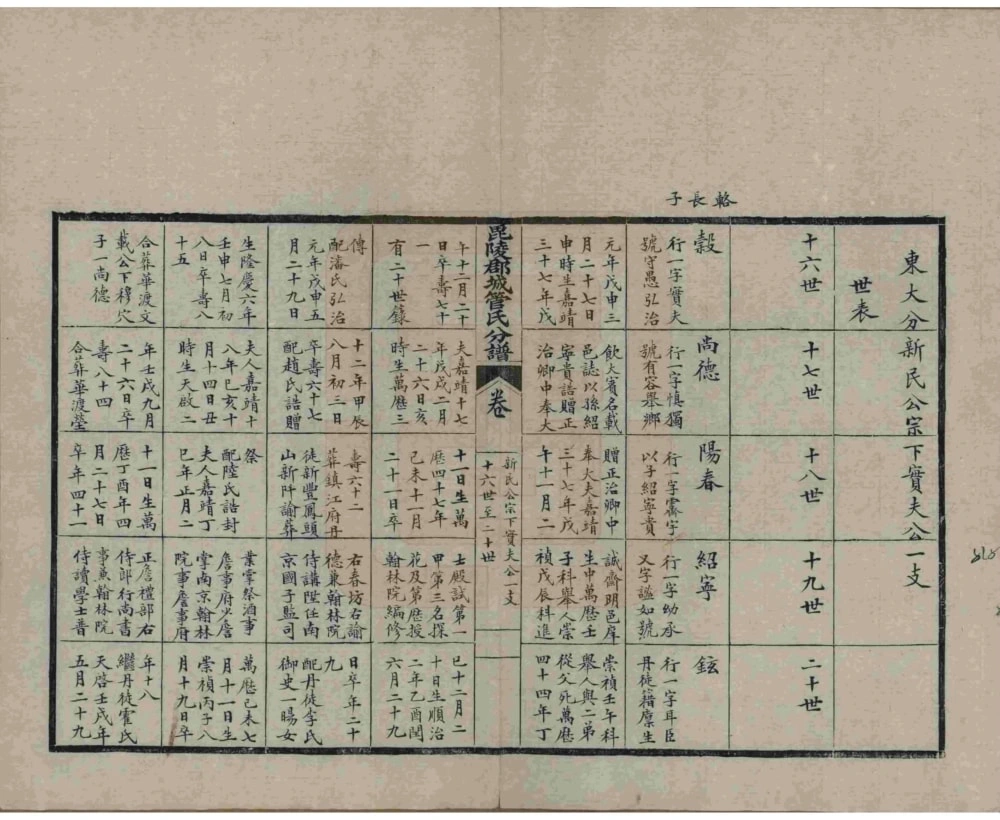 東大分新民公宗下實夫公一支
世表
十六世
十七世
十八世
十九世
二十世
輅長子
轂
行一字實夫
號守愚弘治
元年戊申三
月二十七日
申時生嘉靖
三十七年戊
午十二月二十
日卒壽七十
一
有二十世錄
傳
配潘氏弘治
元年戊申五
月二十九日
生隆慶六年
壬申七月初
八日卒壽八
十五
合葬華渡文
載公下穆穴
子一尚德
尚德
行一字慎獨
號有容舉鄉
飲大賓名載
邑誌以孫紹
寧貴誥贈正
治卿申奉大
夫嘉靖十七
年戊戌二月
二十六日亥
時生萬曆三
十二年甲辰
八月初三日
卒壽六十七
配趙氏誥贈
夫人嘉靖十
八年己亥十
月十四日丑
時生天啟二
年壬戌九月
二十六日卒
壽八十四
合葬華渡塋
陽春
行一字霽宇
以子紹寧貴
贈正治卿中
奉大夫嘉靖
三十七年戊
午十一月二
十一日生萬
曆四十七年
己未十一月
二十一日卒
壽六十二
葬鎮江府丹
徒新豐鳳頭
山新阡諭葬
祭
配陸氏誥封
夫人嘉靖丁
巳年正月二
十一日生萬
曆丁酉年四
月二十七日
卒年四十一
紹寧
行一字幼承
又字謐如號
誠齋明邑庠
生中萬曆壬
子科舉人崇
禎戊辰科進
士殿試第一
甲第三名探
花及第歷授
翰林院編修
右春坊右諭
德兼翰林院
侍講陞任南
京國子監司
業掌祭酒事
詹事府少詹
掌南京翰林
院事詹事府
正詹禮部右
侍郎行尚書
事兼翰林院
侍讀學士普
鉉
行一字耳臣
丹徒籍廩生
崇禎壬午科
舉人與二弟
從父死萬曆
四十四年丁
巳十二月二
十日生順治
二年乙酉閏
六月二十九
日卒年二十
九
配丹徒李氏
御史一暘女
萬曆己未七
月十一日生
崇禎丙子八
月十九日卒
年十八
繼丹徒霍氏
天啓壬戌年
五月二十九
毘陵郡城管氏分譜
卷
新民公宗下實夫公一支
十六世至二十世